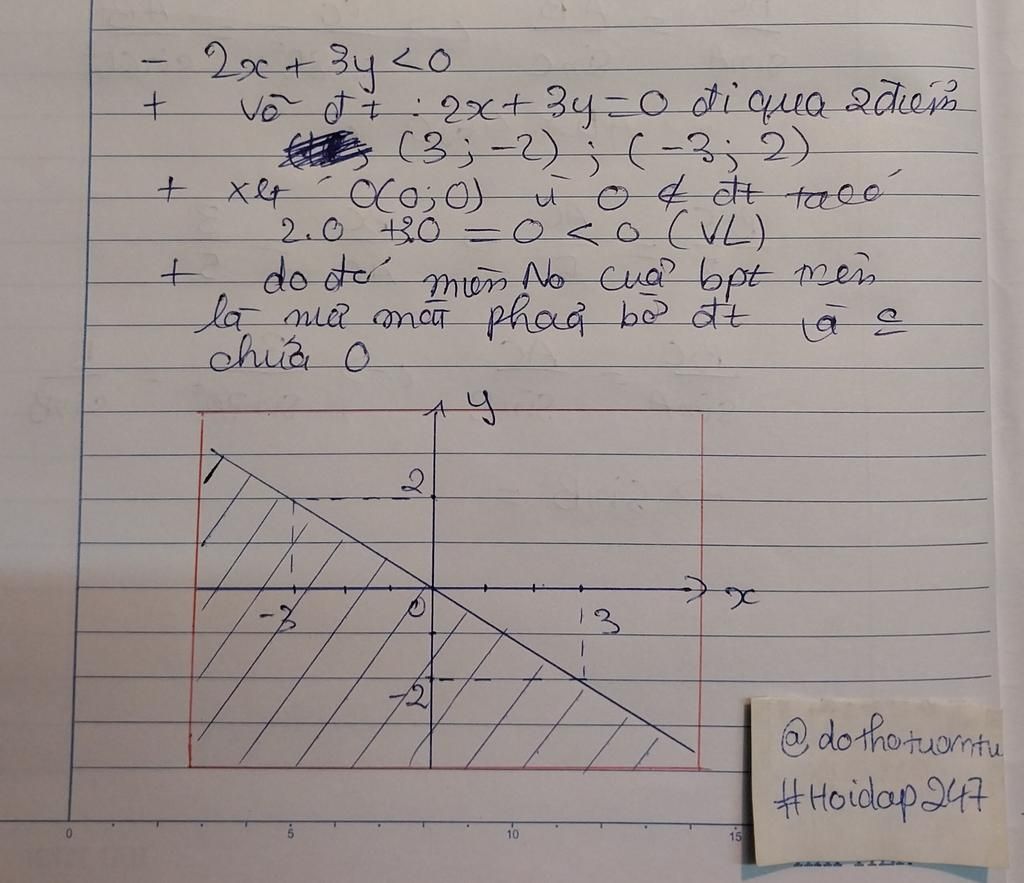 - 2x + 3y < 0
+ Vẽ đt : 2x + 3y = 0 đi qua 2 điểm
(3 ; -2) ; (-3 ; 2)
+ xét O(0;0) O ∉ đt ta có
2.0 + 3.0 = 0 < 0 (VL)
+ do đó miền No của bpt
là mp bờ đt
chứa O
y
2
-3
0
3
x
-2
@dothotuomtu
#Hoidap247
0
5
10
15